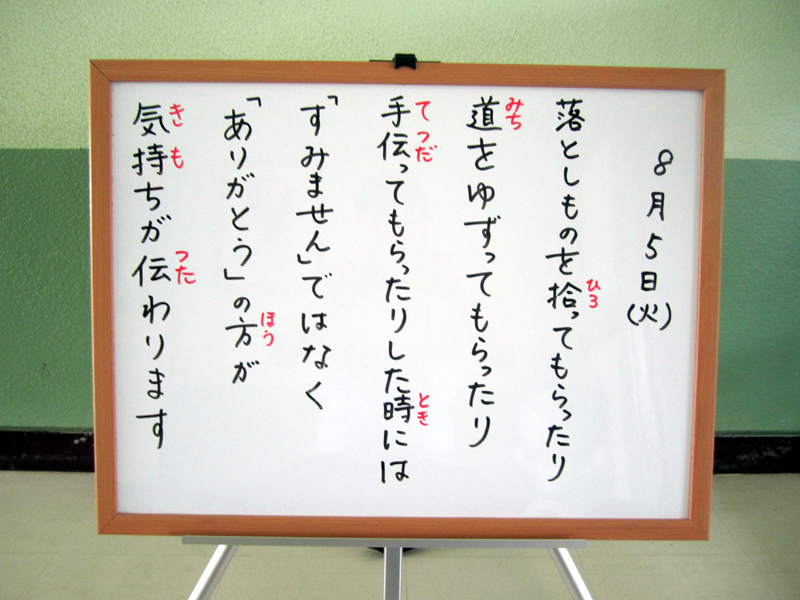 8月5日(火)
落としものを拾ってもらったり
ひろ
道をゆずってもらったり
みち
手伝ってもらったりした時には
てつだ
とき
「すみません」ではなく
「ありがとう」の方が
ほう
気持ちが伝わります
きも
つた